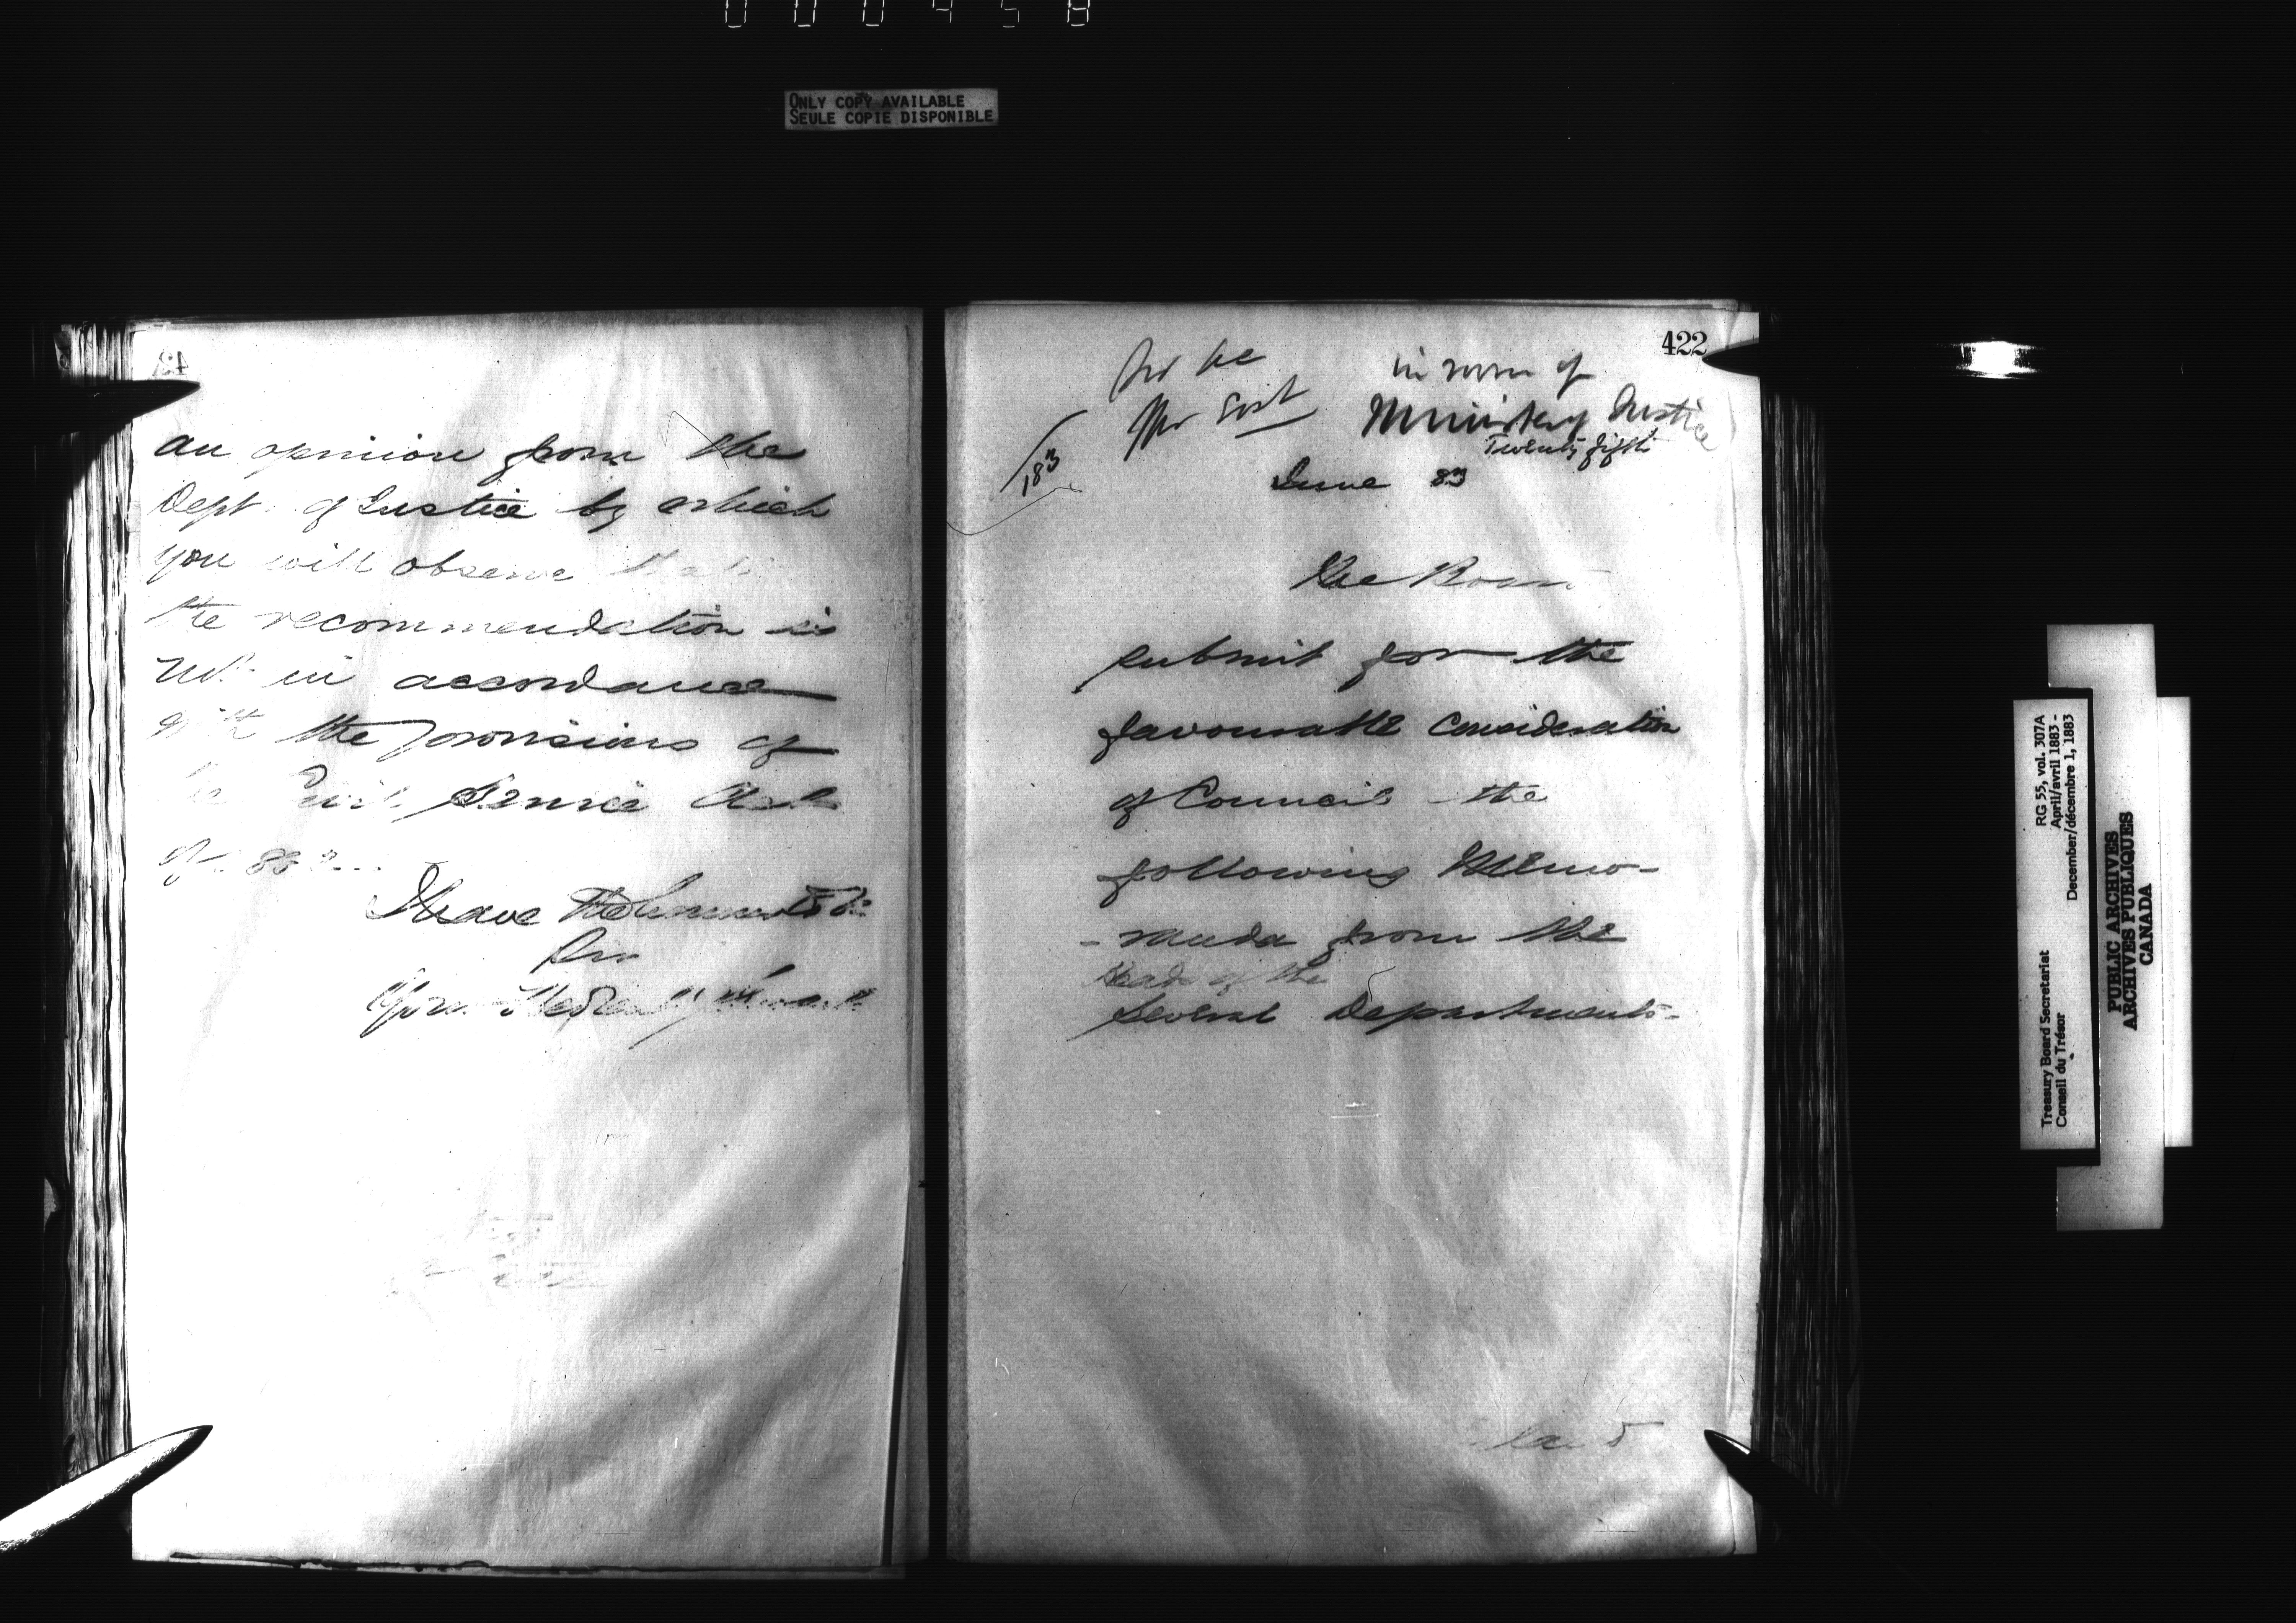 000458
ONLY COPY AVAILABLE
SEULE COPIE DISPONIBLE
an opinion from the
Dept. of Justice by which
you will observe that
the recommendation is
not in accordance
with the provisions of
the Civil Service Act
of 1882
I have the honour to be
Sir
Your Obedient Servant
422
in room of
Minister of Justice
Twenty fifth
June 83
183
The Board
submit for the
favourable consideration
of Council the
following Memo-
-randa from the
Heads of the
several Departments-
Treasury Board Secretariat
Conseil du Trésor
RG 55, vol. 307A
April/avril 1883 -
December/décembre 1, 1883
PUBLIC ARCHIVES
ARCHIVES PUBLIQUES
CANADA